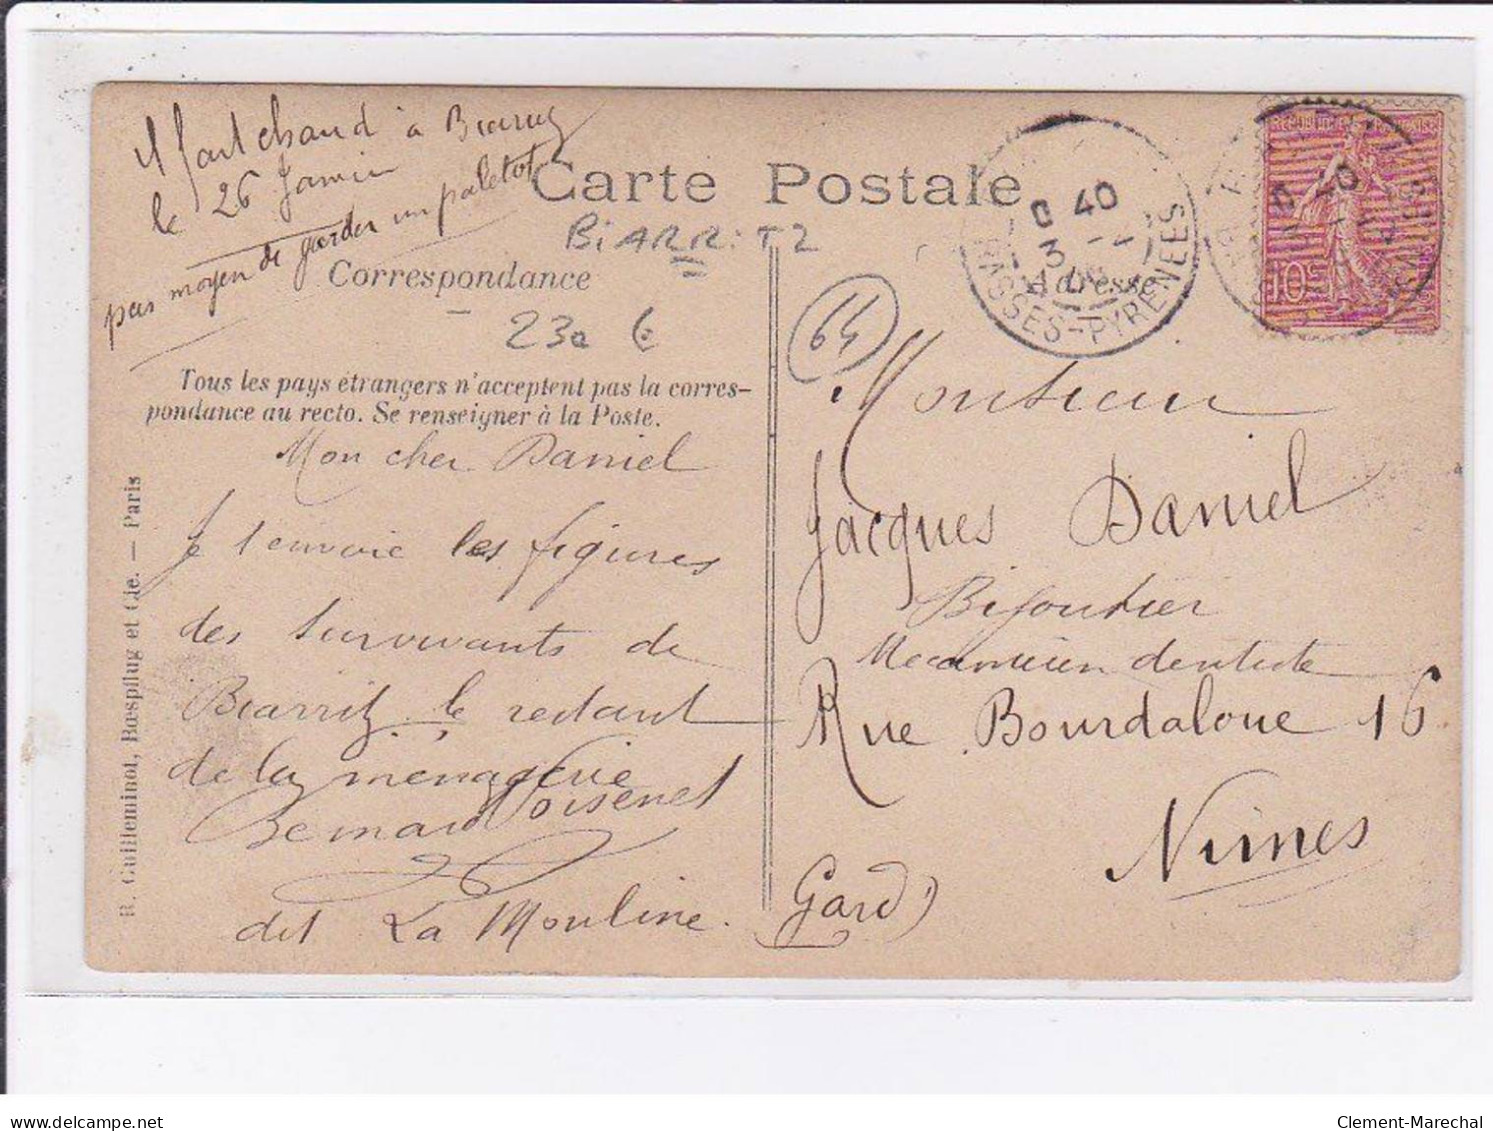 Il fait chaud à Biarritz
le 26 Janvier
pas moyen de garder un paletot
Carte Postale
BiARRiTZ
Correspondance
Adresse
230 €
64
Tous les pays étrangers n'acceptent pas la corres-
pondance au recto. Se renseigner à la Poste.
Mon cher Daniel
Je t'envoie les figures
des survivants de
Biarritz le restant
de la ménagerie
Bernard Voisenet
dit La Mouline.
R. Guilleminot, Bœspflug et Cie. — Paris
0 40
3
BASSES-PYRENEES
0 40
10c
Monsieur
Jacques Daniel
Bijoutier
Mecanicien dentiste
Rue Bourdaloue 16
Nimes
(Gard)
delcampe.net
Clement-Marechal